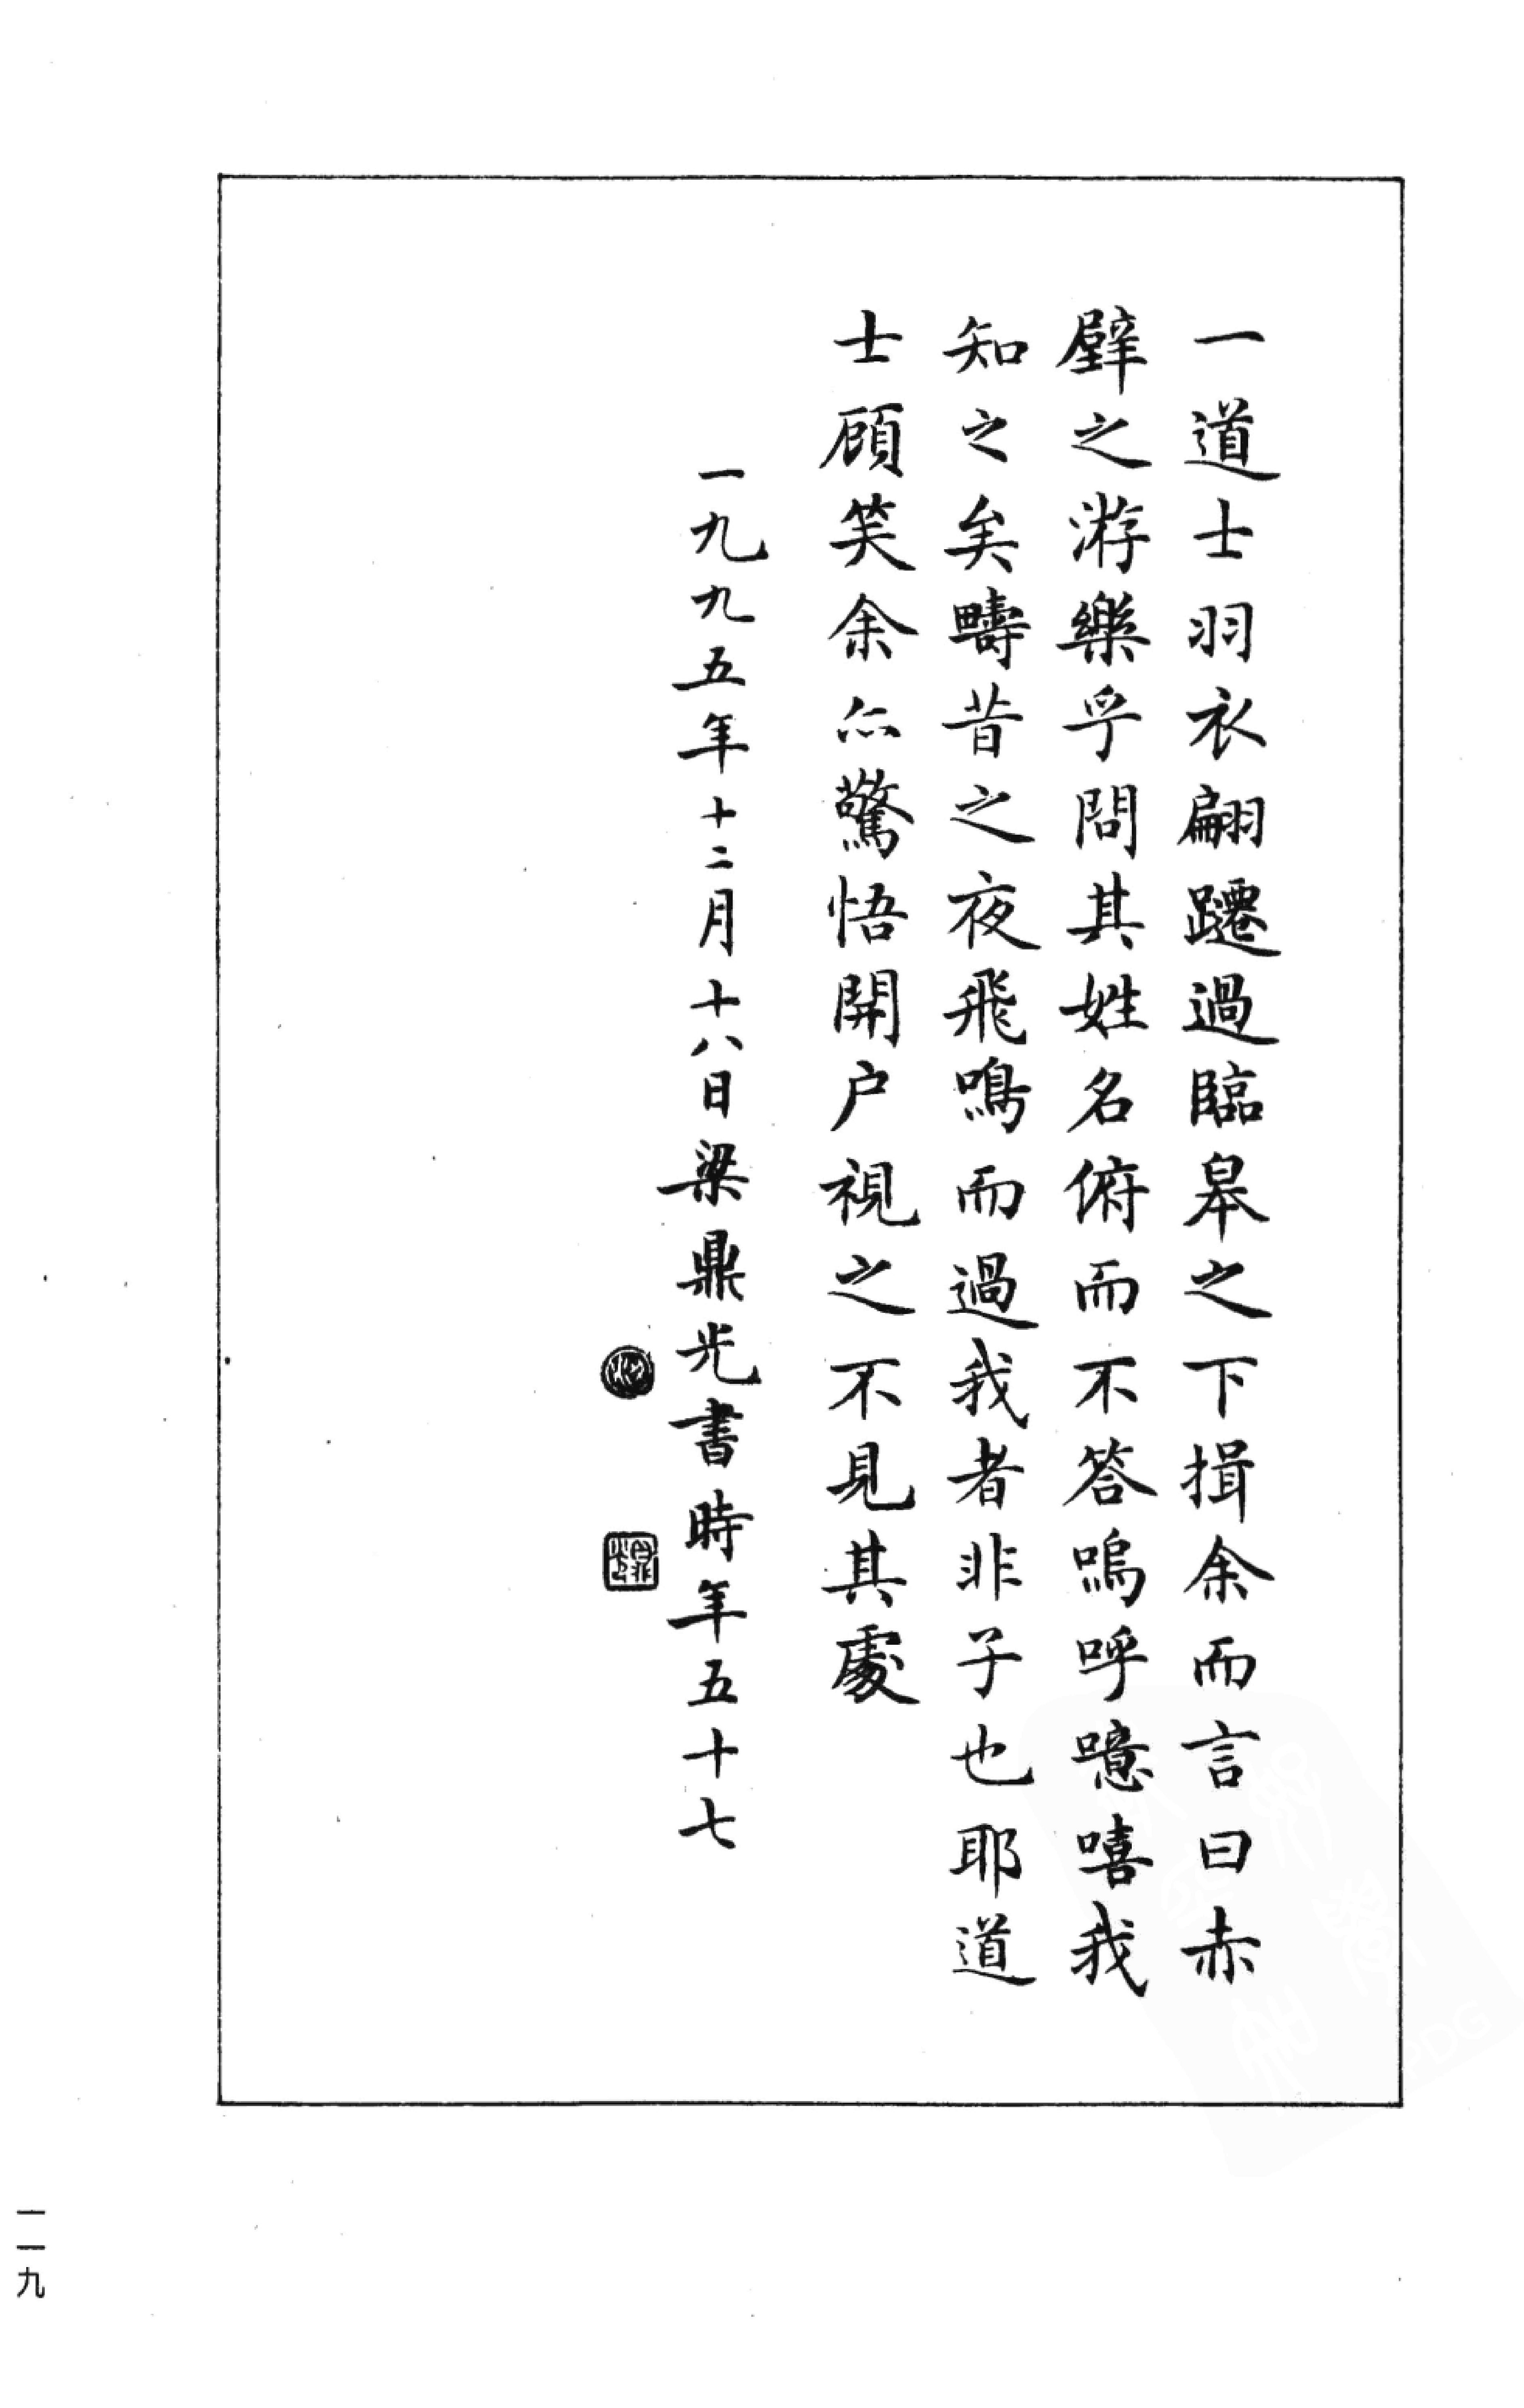 一道士羽衣翩躚過臨皋之下揖余而言曰赤
壁之游樂乎問其姓名俯而不答嗚呼噫嘻我
知之矣疇昔之夜飛鳴而過我者非子也耶道
士顧笑余亦驚悟開户視之不見其處
一九九五年十二月十八日梁鼎光書時年五十七
一一九